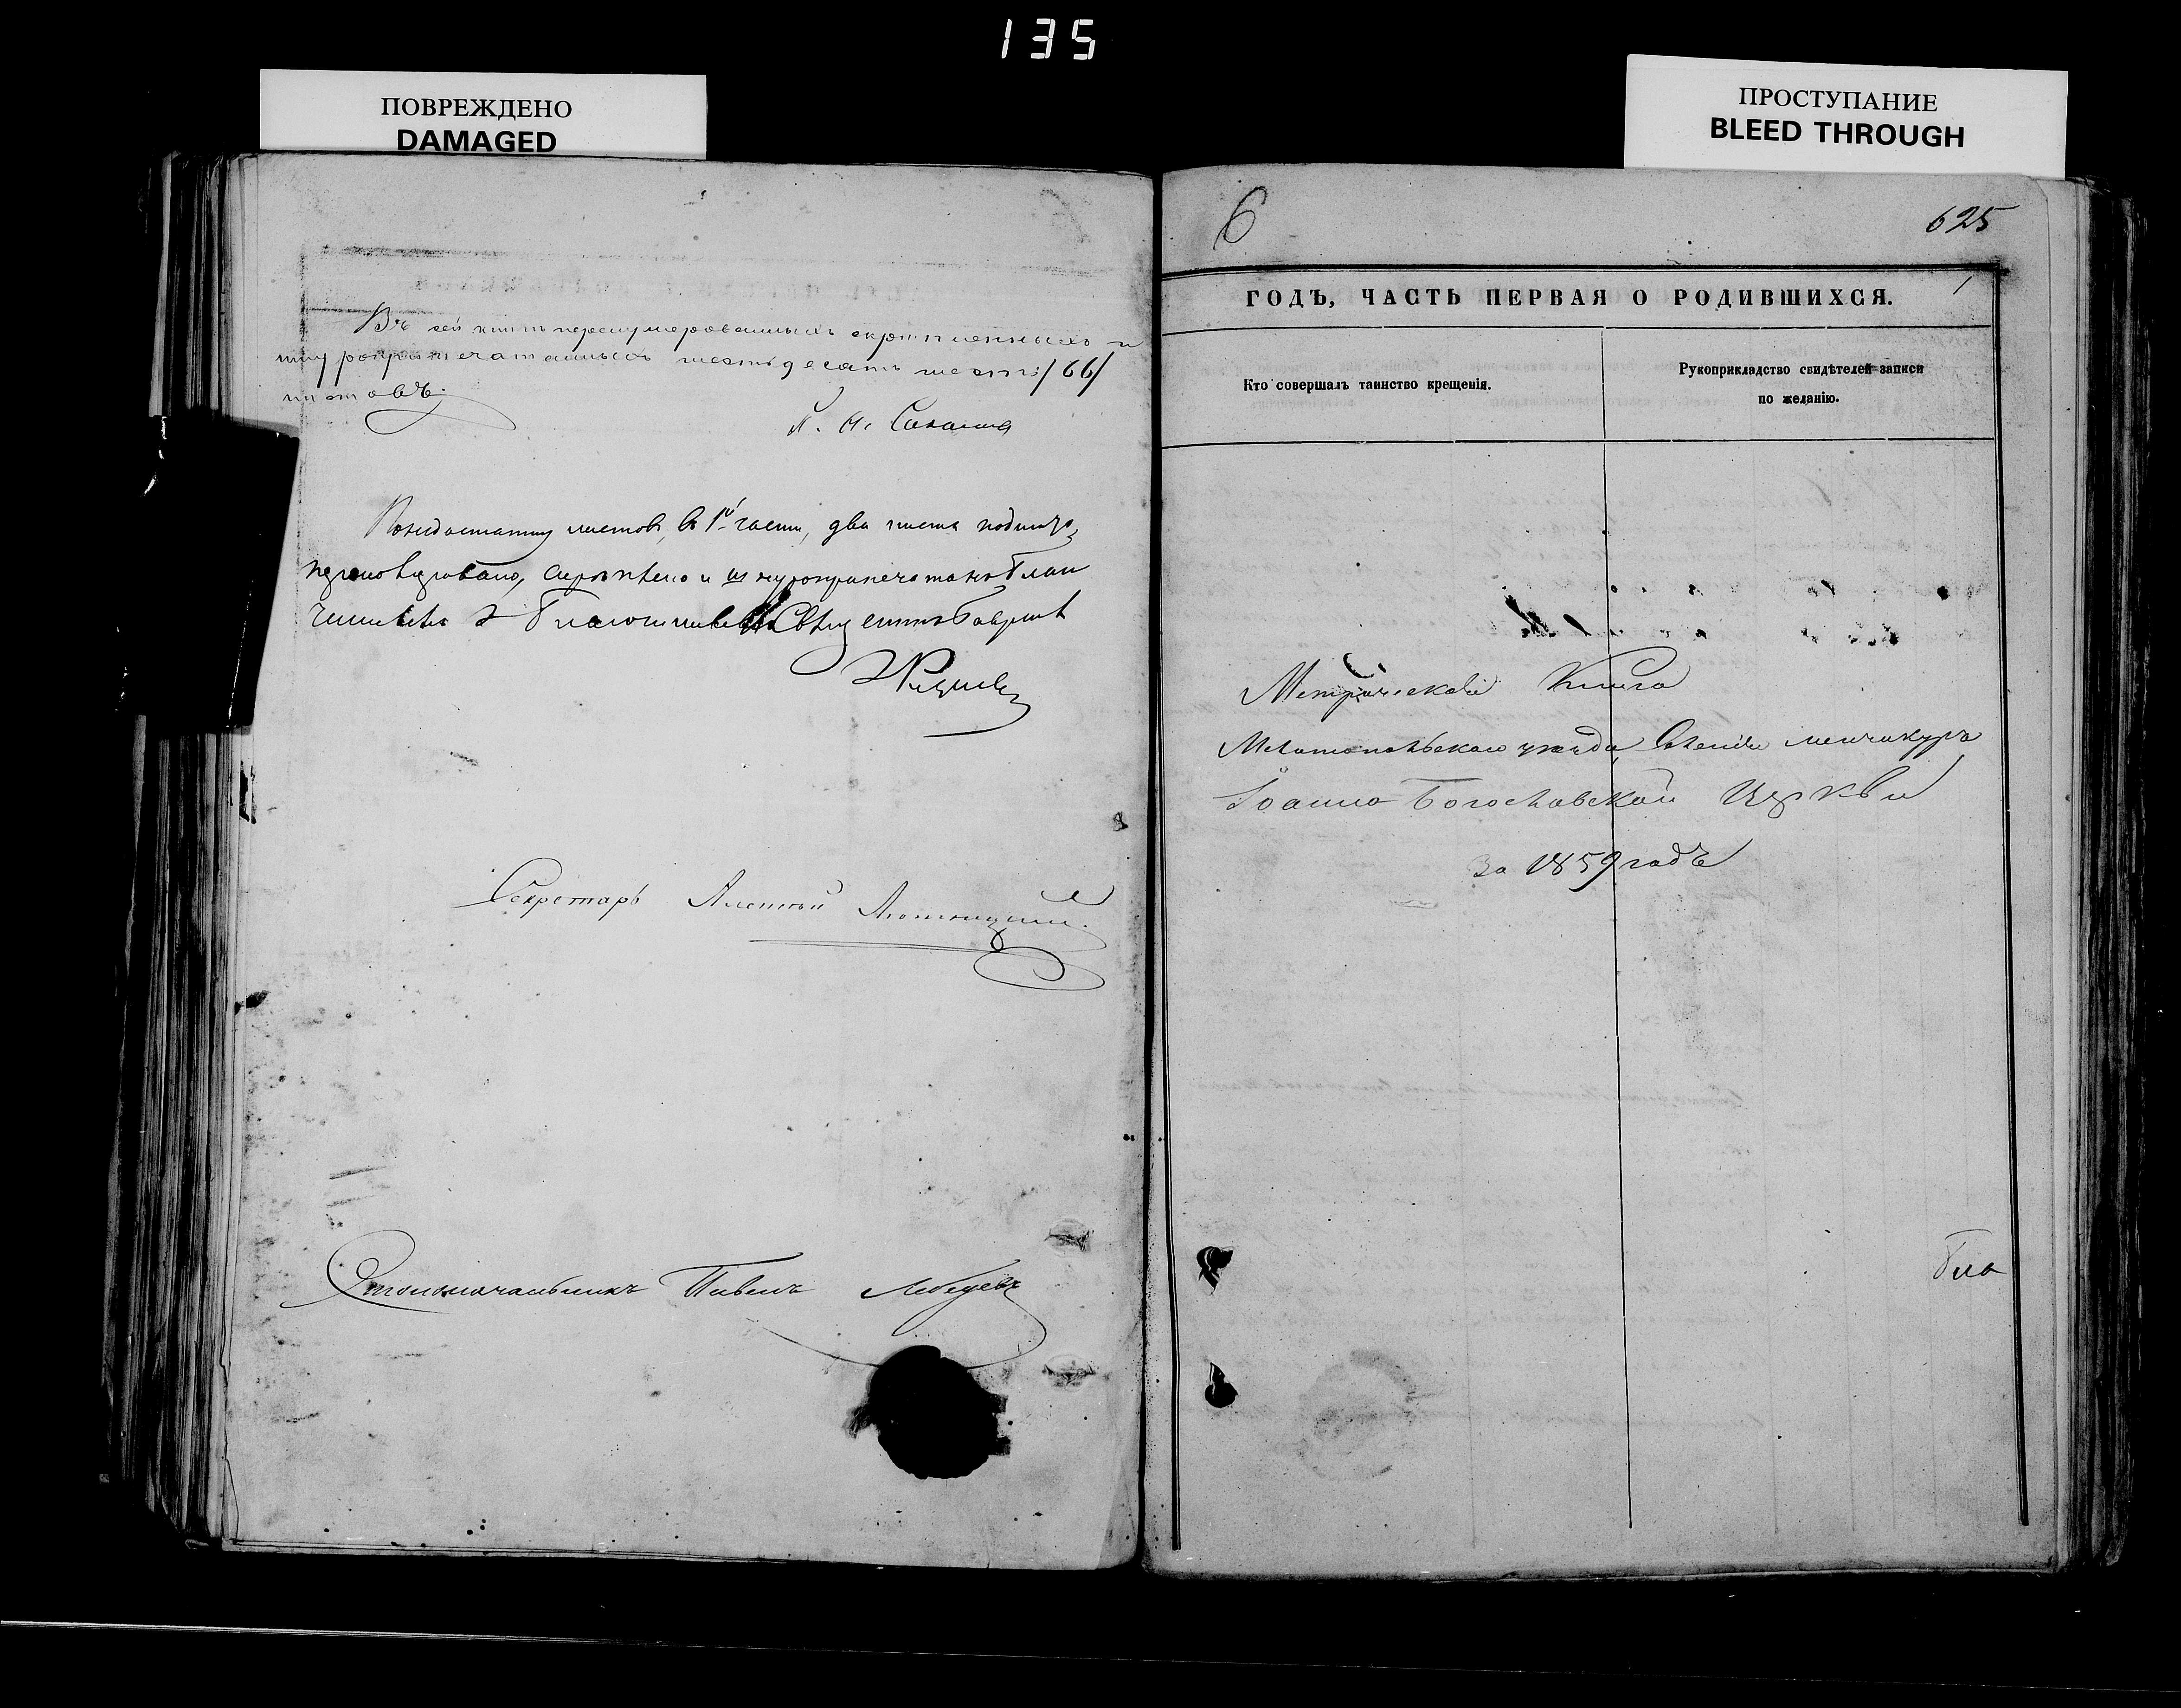 135
ПОВРЕЖДЕНО
DAMAGED
ПРОСТУПАНИЕ
BLEED THROUGH
Въ сей книгѣ перенумерованныхъ скрѣпленныхъ и
шнуроприпечатанныхъ шестьдесятъ шесть /66/
листовъ.
По недостатку листовъ, въ 1й части, два листа
и шнуроприпечатано Благо
чиннымъ 2
Секретарь Алексѣй
Столоначальникъ Павелъ Лебедевъ
6
625
1
ГОДЪ, ЧАСТЬ ПЕРВАЯ О РОДИВШИХСЯ.
Кто совершалъ таинство крещенія.
Рукоприкладство свидѣтелей записи
по желанію.
Метрическая Книга
Мелитопольскаго уѣзда, Селенія Менчикуръ
Іоанно Богословской Церкви
За 1859 годъ
Бла